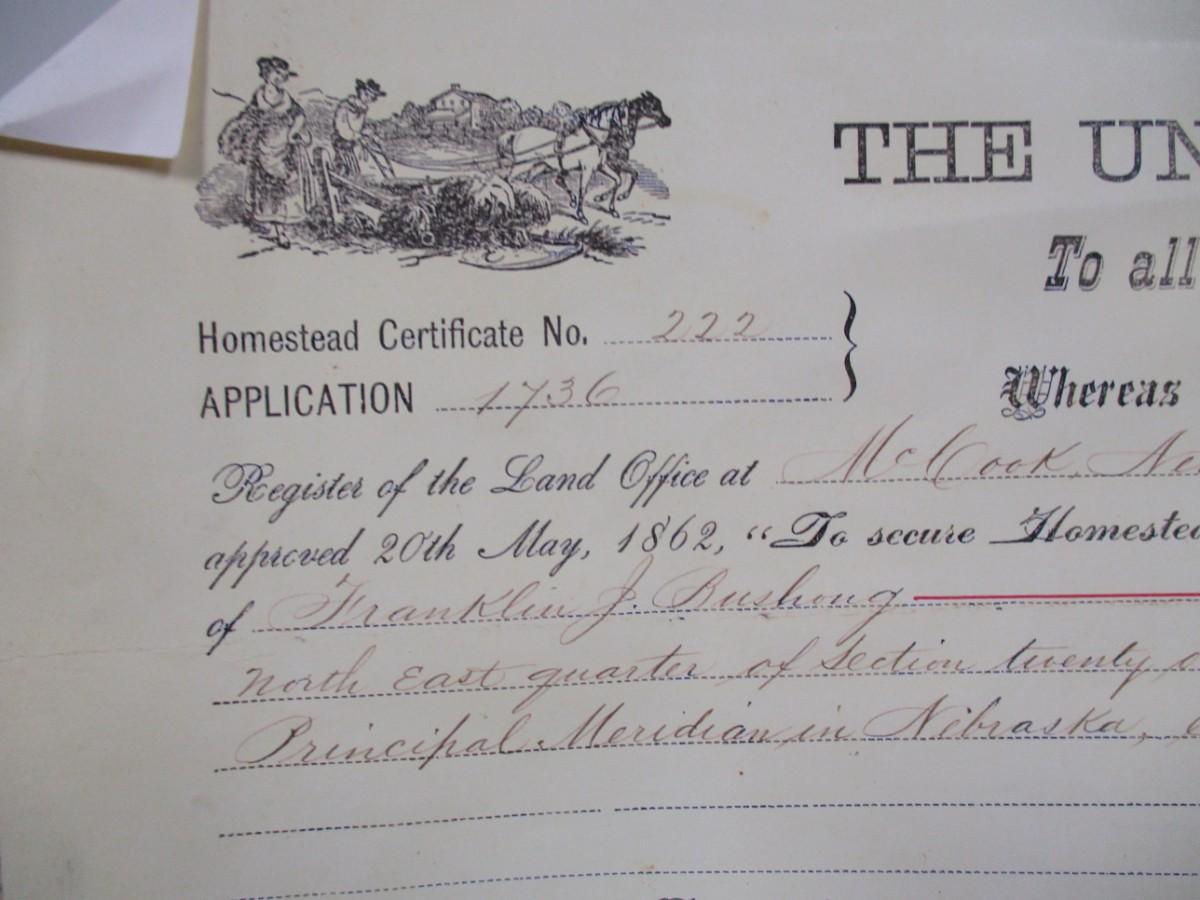 THE UN
To all
Homestead Certificate No. 222
APPLICATION 1736
Whereas
Register of the Land Office at McCook, Ne
approved 20th May, 1862, “To secure Homestea
of Franklin J. Bushong
North East quarter of Section twenty
Principal Meridian in Nebraska,